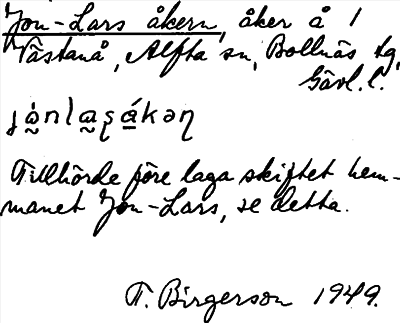 Jon-Lars åkern, åker å 1
Västanå, Alfta sn, Bollnäs tg,
Gävl. l.
Tillhörde före laga skiftet hem-
manet Jon-Lars, se detta.
T. Birgerson 1949.